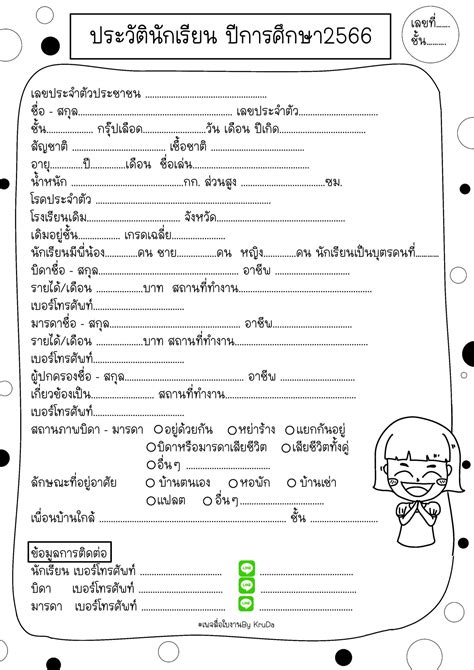 ประวัตินักเรียน ปีการศึกษา2566
เลขที่.......
ชั้น..........
เลขประจำตัวประชาชน ..........................................
ชื่อ - สกุล.................................................... เลขประจำตัว.......................
ชั้น.............. กรุ๊ปเลือด..................วัน เดือน ปีเกิด.........................
สัญชาติ ........................... เชื้อชาติ ...........................
อายุ..........ปี..........เดือน ชื่อเล่น.................................
น้ำหนัก ........................................กก. ส่วนสูง ........................ซม.
โรคประจำตัว .......................................................................
โรงเรียนเดิม........................... จังหวัด.....................................
เดิมอยู่ชั้น............. เกรดเฉลี่ย...............
นักเรียนมีพี่น้อง.........คน ชาย.........คน หญิง.........คน นักเรียนเป็นบุตรคนที่.......
บิดาชื่อ - สกุล......................................... อาชีพ ........................
รายได้/เดือน .....................บาท สถานที่ทำงาน..............................
เบอร์โทรศัพท์..........................
มารดาชื่อ - สกุล...................................... อาชีพ........................
รายได้/เดือน .....................บาท สถานที่ทำงาน..............................
เบอร์โทรศัพท์..........................
ผู้ปกครองชื่อ - สกุล................................. อาชีพ ........................
เกี่ยวข้องเป็น................ สถานที่ทำงาน.....................................
เบอร์โทรศัพท์..........................
สถานภาพบิดา - มารดา ○อยู่ด้วยกัน ○หย่าร้าง ○แยกกันอยู่
○บิดาหรือมารดาเสียชีวิต ○เสียชีวิตทั้งคู่
○อื่นๆ ......................
ลักษณะที่อยู่อาศัย ○บ้านตนเอง ○หอพัก ○บ้านเช่า
○แฟลต ○อื่นๆ......................
เพื่อนบ้านใกล้ ....................................................... ชั้น ..............
ข้อมูลการติดต่อ
นักเรียน เบอร์โทรศัพท์ ........................ LINE ........................
บิดา เบอร์โทรศัพท์ ........................ LINE ........................
มารดา เบอร์โทรศัพท์ ........................ LINE ........................
#เพจสื่อใบงานBy KruDa